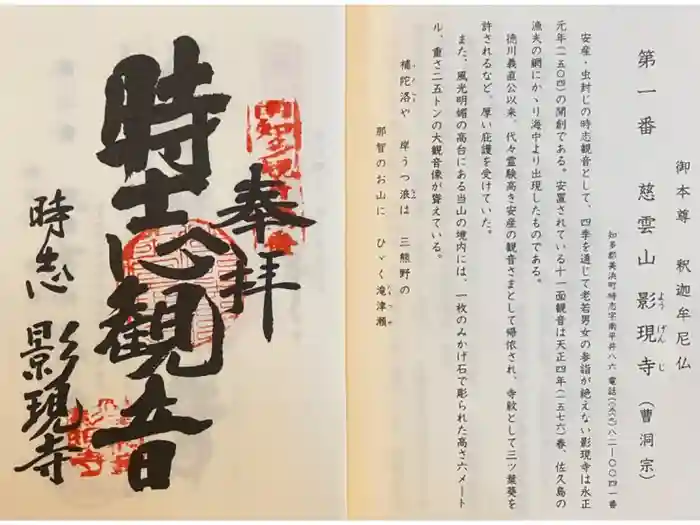 御本尊　釈迦牟尼仏
第一番　慈雲山　影現寺（曹洞宗）
ようげんじ
知多郡美浜町時志字南平井八六　電話（〇五六九）八二ー〇〇四一番
安産・虫封じの時志観音として、四季を通じて老若男女の参詣が絶えない影現寺は永正
元年（一五〇四）の開創である。安置されている十一面観音は天正四年（一五七六）春、佐久島の
漁夫の網にかゝり海中より出現したものである。
徳川義直公以来、代々霊験高き安産の観音さまとして帰依され、寺紋として三ツ葉葵を
許されるなど、厚い庇護を受けていた。
また、風光明媚の高台にある当山の境内には、一枚のみかげ石で彫られた高さ六メート
ル、重さ二五トンの大観音像が聳えている。
補陀洛や　岸うつ浪は　三熊野の
那智のお山に　ひゞく滝津瀬
奉拝
時志観音
時志　影現寺